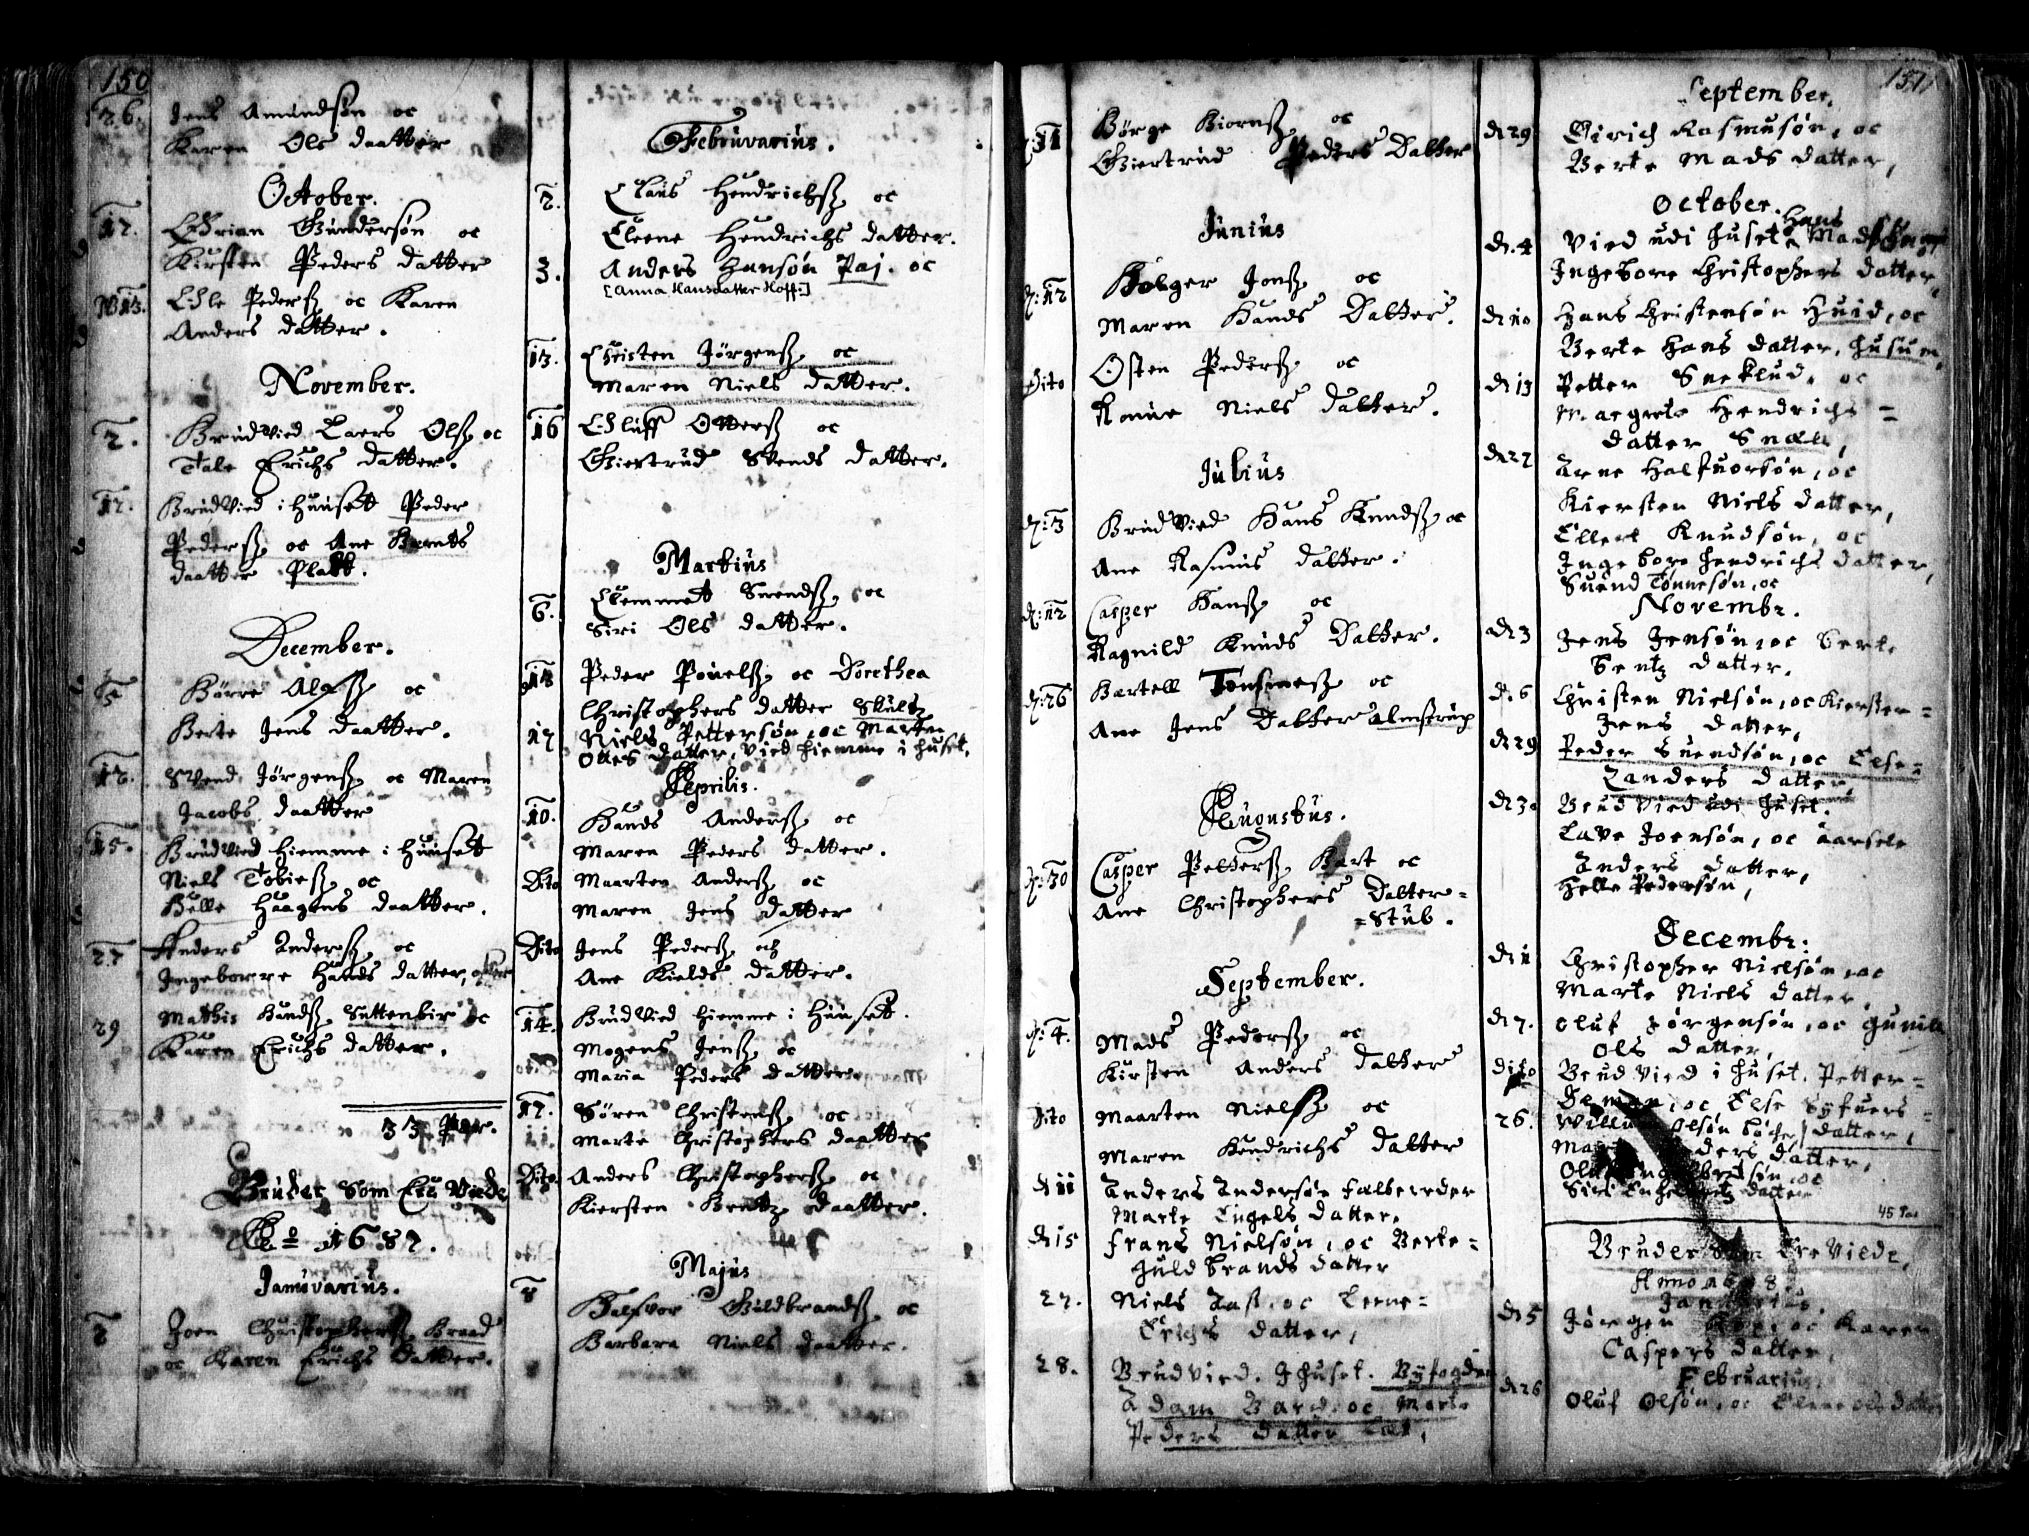 150
26. Jens Amundsøn oc
Karen Ols daatter
October.
12. Gundersøn oc
Kirsten Peders datter
13. Ole Peders. oc Karen
Anders datter.
November.
2. Brudvied Laers Ols. oc
Tale Erichs datter.
12. Brudvied i Huuset Peder
Peders. oc Ane Bernts
daatter Platt.
December.
5 Børre Olss. oc
Berte Jens daatter.
12. Svend Jørgens. oc Maren
Jacobs daatter
15. Brudvied hiemme i Huuset
Niels Tobies. oc
Helle Haagens daatter.
27 Anders Anders. oc
Ingeborre Hands datter,
Mathis Hands. Suttenbir oc
29 Karen Erichs datter.
33 Par.
Bruder Som Ere Viede
Ao 1687.
Januvarius.
2 Joen Christophers. Braad
oc Karen Erichs datter.
Februvarius.
2. Claus Hendrichs. oc
Eleene Hendrichs datter.
3. Anders Hansøn Paj. oc
[Anna Hansdatter Hoff:]
13. Christen Jørgens. oc
Maren Niels datter.
16 Oluff Otters. oc
Giertrud Svends datter.
Martius
6. Clemmet Svends. oc
Siri Ols datter.
13 Peder Povels. oc Dorethea
Christophers datter Skultz
17 Niels Pettersøn, oc Marte
Ottes datter, vied hiemme i huset.
Aprilis.
10. Hands Anders. oc
Maren Peders datter.
Dito Maarten Anders. oc
Maren Jens datter
Dito Jens Peders. och
Ane Kields datter.
14. Brudvied hiemme i Huuset.
Mogens Jens. oc
Maria Peders datter.
17. Søren Christens. oc
Marte Christophers daatter
Dito Anders Christophers. oc
Kiersten Brettz daatter.
Majus
8 Halfvor Guldbrands. oc
Barbara Niels daatter.
151
11 Børge Biorns. oc
Giertrud Peders Datter
Junius
d: 12 Holger Jons. oc
Maren Hands Datter.
Dito Osten Peders. oc
Rønue Niels datter.
Julius
d: 3 Brudvied Hans Knuds. oc
Ane Rasmus datter.
d: 12 Casper Hans. oc
Ragnild Knuds Datter.
d: 26 Bartell Tønneses. oc
Ane Jens Datter Almstrup
Augustus.
d: 30 Casper Petters. Bart oc
Ane Christophers Datter=
=Stub.
September.
d: 4. Mads Peders. oc
Kirsten Anders datter
Dito Maarten Niels. oc
Maren Hendrichs datter
d 11 Anders Andersøn Falbereder
Marte Engels datter,
d 15 Frans Nielsøn, oc Berte=
Juldbrands datter
27. Niels Fast. oc Leene=
Erichs datter,
28. Brudvied. J huset. Byfogden
Adam Bard. oc Marte
Peders datter
September.
d 29 Eirich Rasmusøn, oc
Berte Mads datter,
October.
d. 4 Vied udi huset Hans Mads
Ingebore Christophers datter,
d 10 Hans Christensøn Huid, oc
Berte Hans datter, Husum,
d 13 Petter Sneklud, oc
Margrete Hendrichs=
datter Snell,
d 27 Arne Halfuorsøn, oc
Kiersten Niels datter,
Ellert Knudsøn, oc
Ingebore Hendrichs datter,
Suend Tønnesøn, oc
Novembr.
d 3 Jens Jensøn, oc Berte
Bentz datter,
d. 6 Christen Nielsøn, oc Kiersten=
Jens datter,
d 29 Peder Suendsøn, oc Else=
Landers datter,
d 30 Brudvied udi huset.
Lave Joensøn, oc Aarsele
Anders datter,
Helle Pedersøn,
Decembr.
d 11 Christopher Nielsøn, oc
Marte Niels datter,
d 7. Oluf Jørgensøn, oc Gunild
Ols datter,
dito Brudvied i huset. Petter=
oc Else Syfuers=
datter,
26. Willum Olsøn
datter,
oc
Siri datter
45 Par
Bruder Som Ere Viede,
Anno
Januarius.
d 5 Jørgen oc Karen
Caspers datter,
Februarius.
d 26 Oluf Olsøn, oc Elene Ols datter